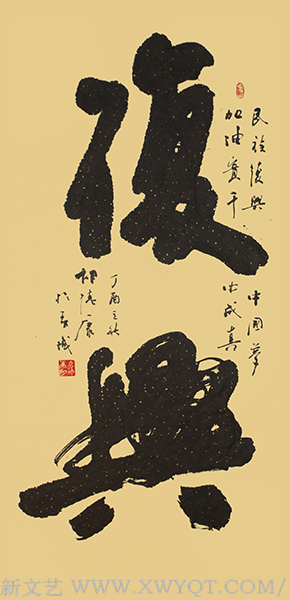 復
興
民族復興
加油實干
中國夢
必成真
丁酉之秋
新文艺 WWW.XWYQT.COM/